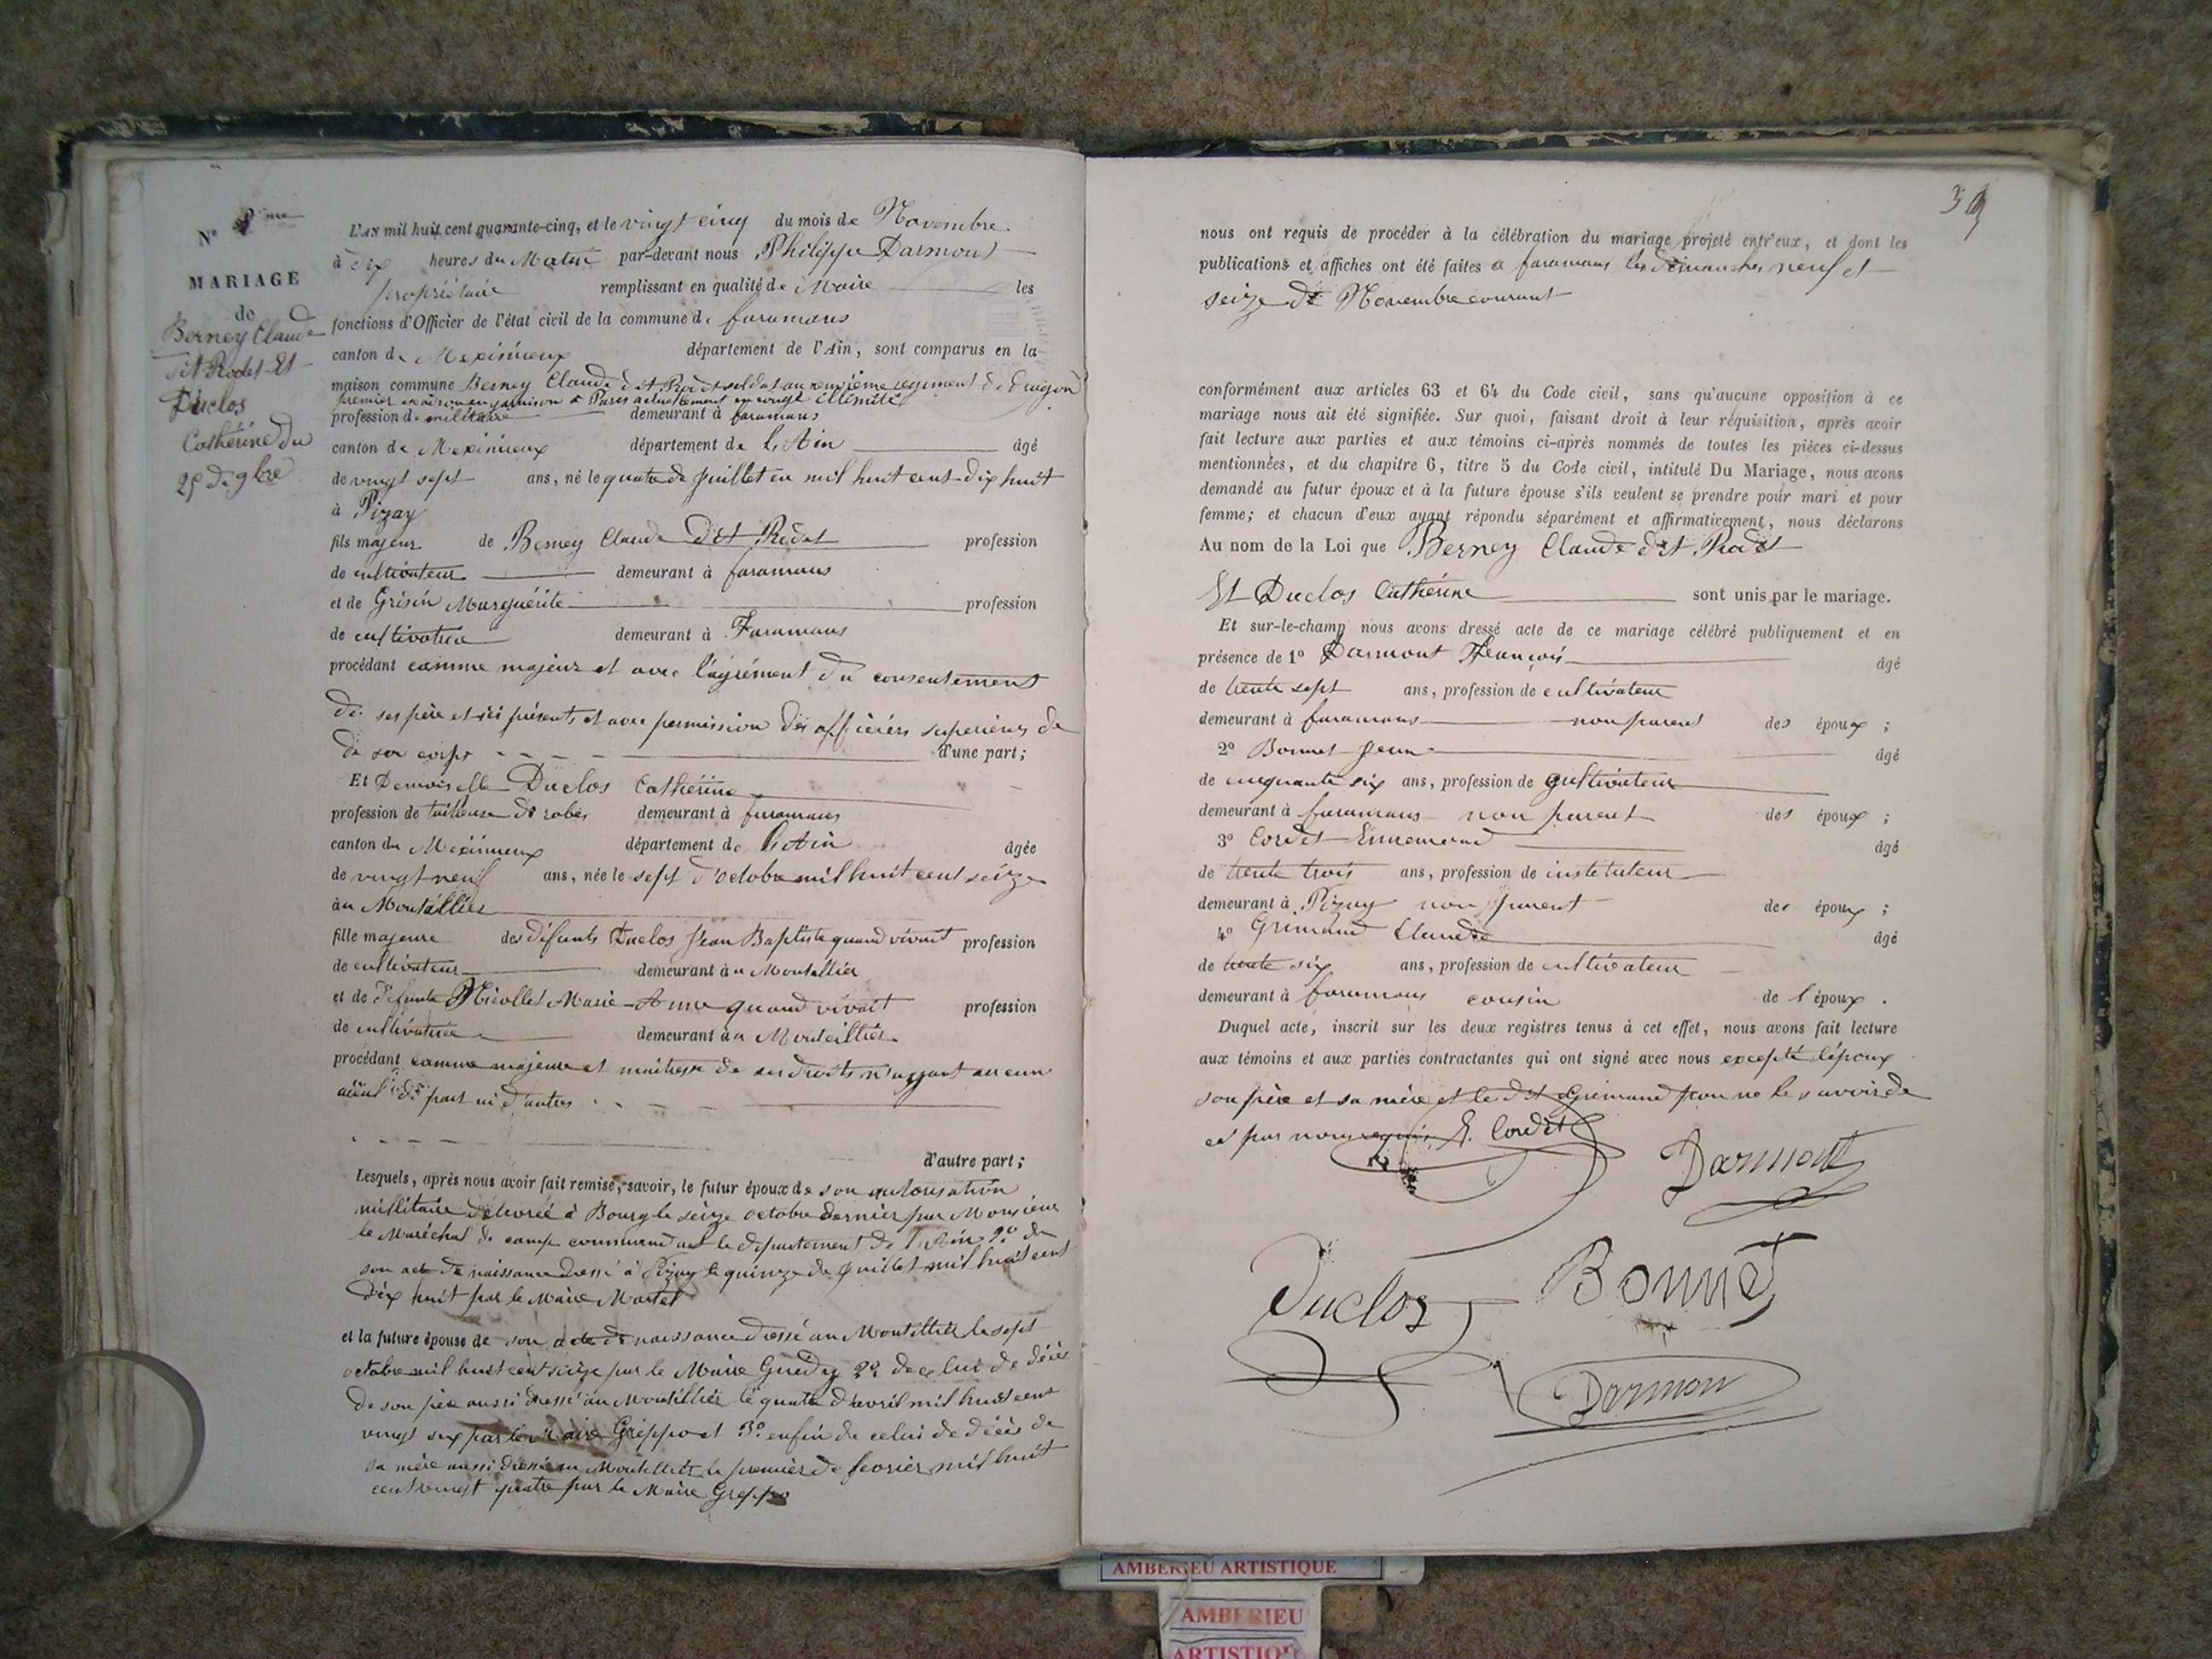 N° 8me
MARIAGE
de
Berney Claude
dit Rodet Et
Duclos
Cathérine du
25 De 9bre
L'AN mil huit cent quarante-cinq, et le vingt cinq du mois de Novembre
à dix heures du Matin par-devant nous Philippe Darmont
propriétaire remplissant en qualité de Maire les
fonctions d'Officier de l'état civil de la commune de faramans
canton de Meximieux département de l'Ain, sont comparus en la
maison commune Berney Claude dit Rodet soldat au neuvième regiment de Dragon
premier escadron en garnison à Paris actuellement en congé illimité
profession de militaire demeurant à faramans
canton de Meximieux département de L'Ain âgé
de vingt sept ans, né le quatre de Juillet en mil huit cent dix huit
à Pizay
fils majeur de Berney Claude dit Rodet profession
de cultivateur demeurant à faramans
et de Grisin Marguérite profession
de cultivatrice demeurant à Faramans
procédant comme majeur et avec l'agrément du consentement
de ses père et ici présents et avec permission des officiers superieurs de
de son corps d'une part;
Et Demoiselle Duclos Cathérine
profession de tailleuse de robes demeurant à faramans
canton de Meximieux département de L'Ain âgée
de vingt neuf ans, née le sept d'octobre mil huit cent seize
au Montéllier
fille majeure des défunts Duclos Jean Baptiste quand vivait profession
de cultivateur demeurant au Montellier
et de défunte Nicollet Marie Anne quand vivait profession
de cultivatrice demeurant au Montéllier
procédant comme majeure et maitresse de ses droits n'ayant aucun
aïeul de part ni d'autres
d'autre part;
Lesquels, après nous avoir fait remise, savoir, le futur époux de son autorisation
millitaire délivrée à Bourg le seize octobre dernier par Monsieur
le Maréchal de camp commandant le département de l'Ain 2° de
son acte de naissance dressé à Pizay le quinze de Juillet mil huit cent
dix huit par le Maire Martel
et la future épouse de son acte de naissance dressé au Montéllier le sept
octobre mil huit cent seize par le Maire 2° de celui de décès
de son père aussi dressé au Montéllier le quatre d'avril mil huit cent
vingt six par le Maire Greppo et 3° enfin de celui de décès de
sa mère aussi dressé au Montéllier le premier de fevrier mil huit
cent vingt quatre par le Maire Greppo
39
nous ont requis de procéder à la célébration du mariage projeté entr'eux, et dont les
publications et affiches ont été faites a faramans les dimanches neuf et
seize de Novembre courant
conformément aux articles 63 et 64 du Code civil, sans qu'aucune opposition à ce
mariage nous ait été signifiée. Sur quoi, faisant droit à leur réquisition, après avoir
fait lecture aux parties et aux témoins ci-après nommés de toutes les pièces ci-dessus
mentionnées, et du chapitre 6, titre 5 du Code civil, intitulé Du Mariage, nous avons
demandé au futur époux et à la future épouse s'ils veulent se prendre pour mari et pour
femme; et chacun d'eux ayant répondu séparément et affirmativement, nous déclarons
Au nom de la Loi que Berney Claude dit Rodet
Et Duclos Cathérine sont unis par le mariage.
Et sur-le-champ nous avons dressé acte de ce mariage célébré publiquement et en
présence de 1° Darmont François âgé
de trente sept ans, profession de cultivateur
demeurant à faramans non parent des époux ;
2° Bonnet Jean âgé
de cinquante six ans, profession de cultivateur
demeurant à faramans non parent des époux ;
3° Cordet Ennemond âgé
de trente trois ans, profession de instituteur
demeurant à Pizay non parent des époux ;
4° Grimand Claude âgé
de trente six ans, profession de cultivateur
demeurant à faramans cousin de l'époux.
Duquel acte, inscrit sur les deux registres tenus à cet effet, nous avons fait lecture
aux témoins et aux parties contractantes qui ont signé avec nous excepté l'époux
son père et sa mère et le dit Grimand pour ne le savoir de
ce par nous requis E. Cordet
Darmont
Duclos
Bonnet
Darmon
AMBERIEU ARTISTIQUE
AMBERIEU
ARTISTIQUE